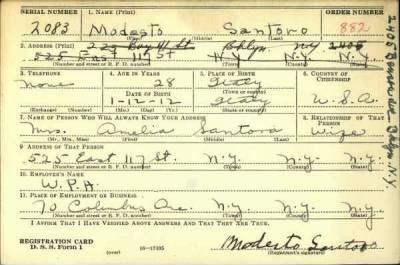 SERIAL NUMBER 1. NAME (Print) ORDER NUMBER
2083 Modesto Santoro 882
(First) (Middle) (Last)
2. ADDRESS (Print)
525 East 117 St N.Y. N.Y. N.Y.
(Number and street or R. F. D. number) (Town) (County) (State)
3. TELEPHONE 4. AGE IN YEARS 5. PLACE OF BIRTH 6. COUNTRY OF CITIZENSHIP
None 28 Italy
DATE OF BIRTH (Town or county)
1-12-12 Italy U.S.A.
(Exchange) (Number) (Mo.) (Day) (Yr.) (State or country)
7. NAME OF PERSON WHO WILL ALWAYS KNOW YOUR ADDRESS 8. RELATIONSHIP OF THAT PERSON
Mrs. Amelia Santoro Wife
(Mr., Mrs., Miss) (First) (Middle) (Last)
9. ADDRESS OF THAT PERSON
525 East 117 St. N.Y. N.Y. N.Y.
(Number and street or R. F. D. number) (Town) (County) (State)
10. EMPLOYER'S NAME
W.P.A.
11. PLACE OF EMPLOYMENT OR BUSINESS
70 Columbus Ave. N.Y. N.Y. N.Y.
(Number and street or R. F. D. number) (Town) (County) (State)
I AFFIRM THAT I HAVE VERIFIED ABOVE ANSWERS AND THAT THEY ARE TRUE.
REGISTRATION CARD
D. S. S. Form 1 (over) 16-17105 Modesto Santoro
(Registrant's signature)